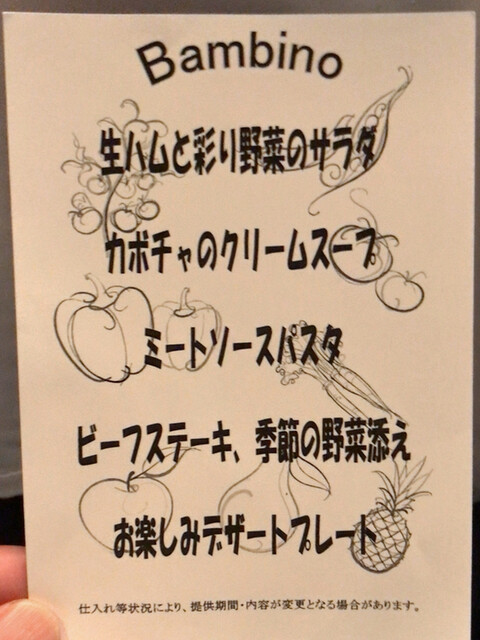 Bambino
生ハムと彩り野菜のサラダ
カボチャのクリームスープ
ミートソースパスタ
ビーフステーキ、季節の野菜添え
お楽しみデザートプレート
仕入れ等状況により、提供期間・内容が変更となる場合があります。